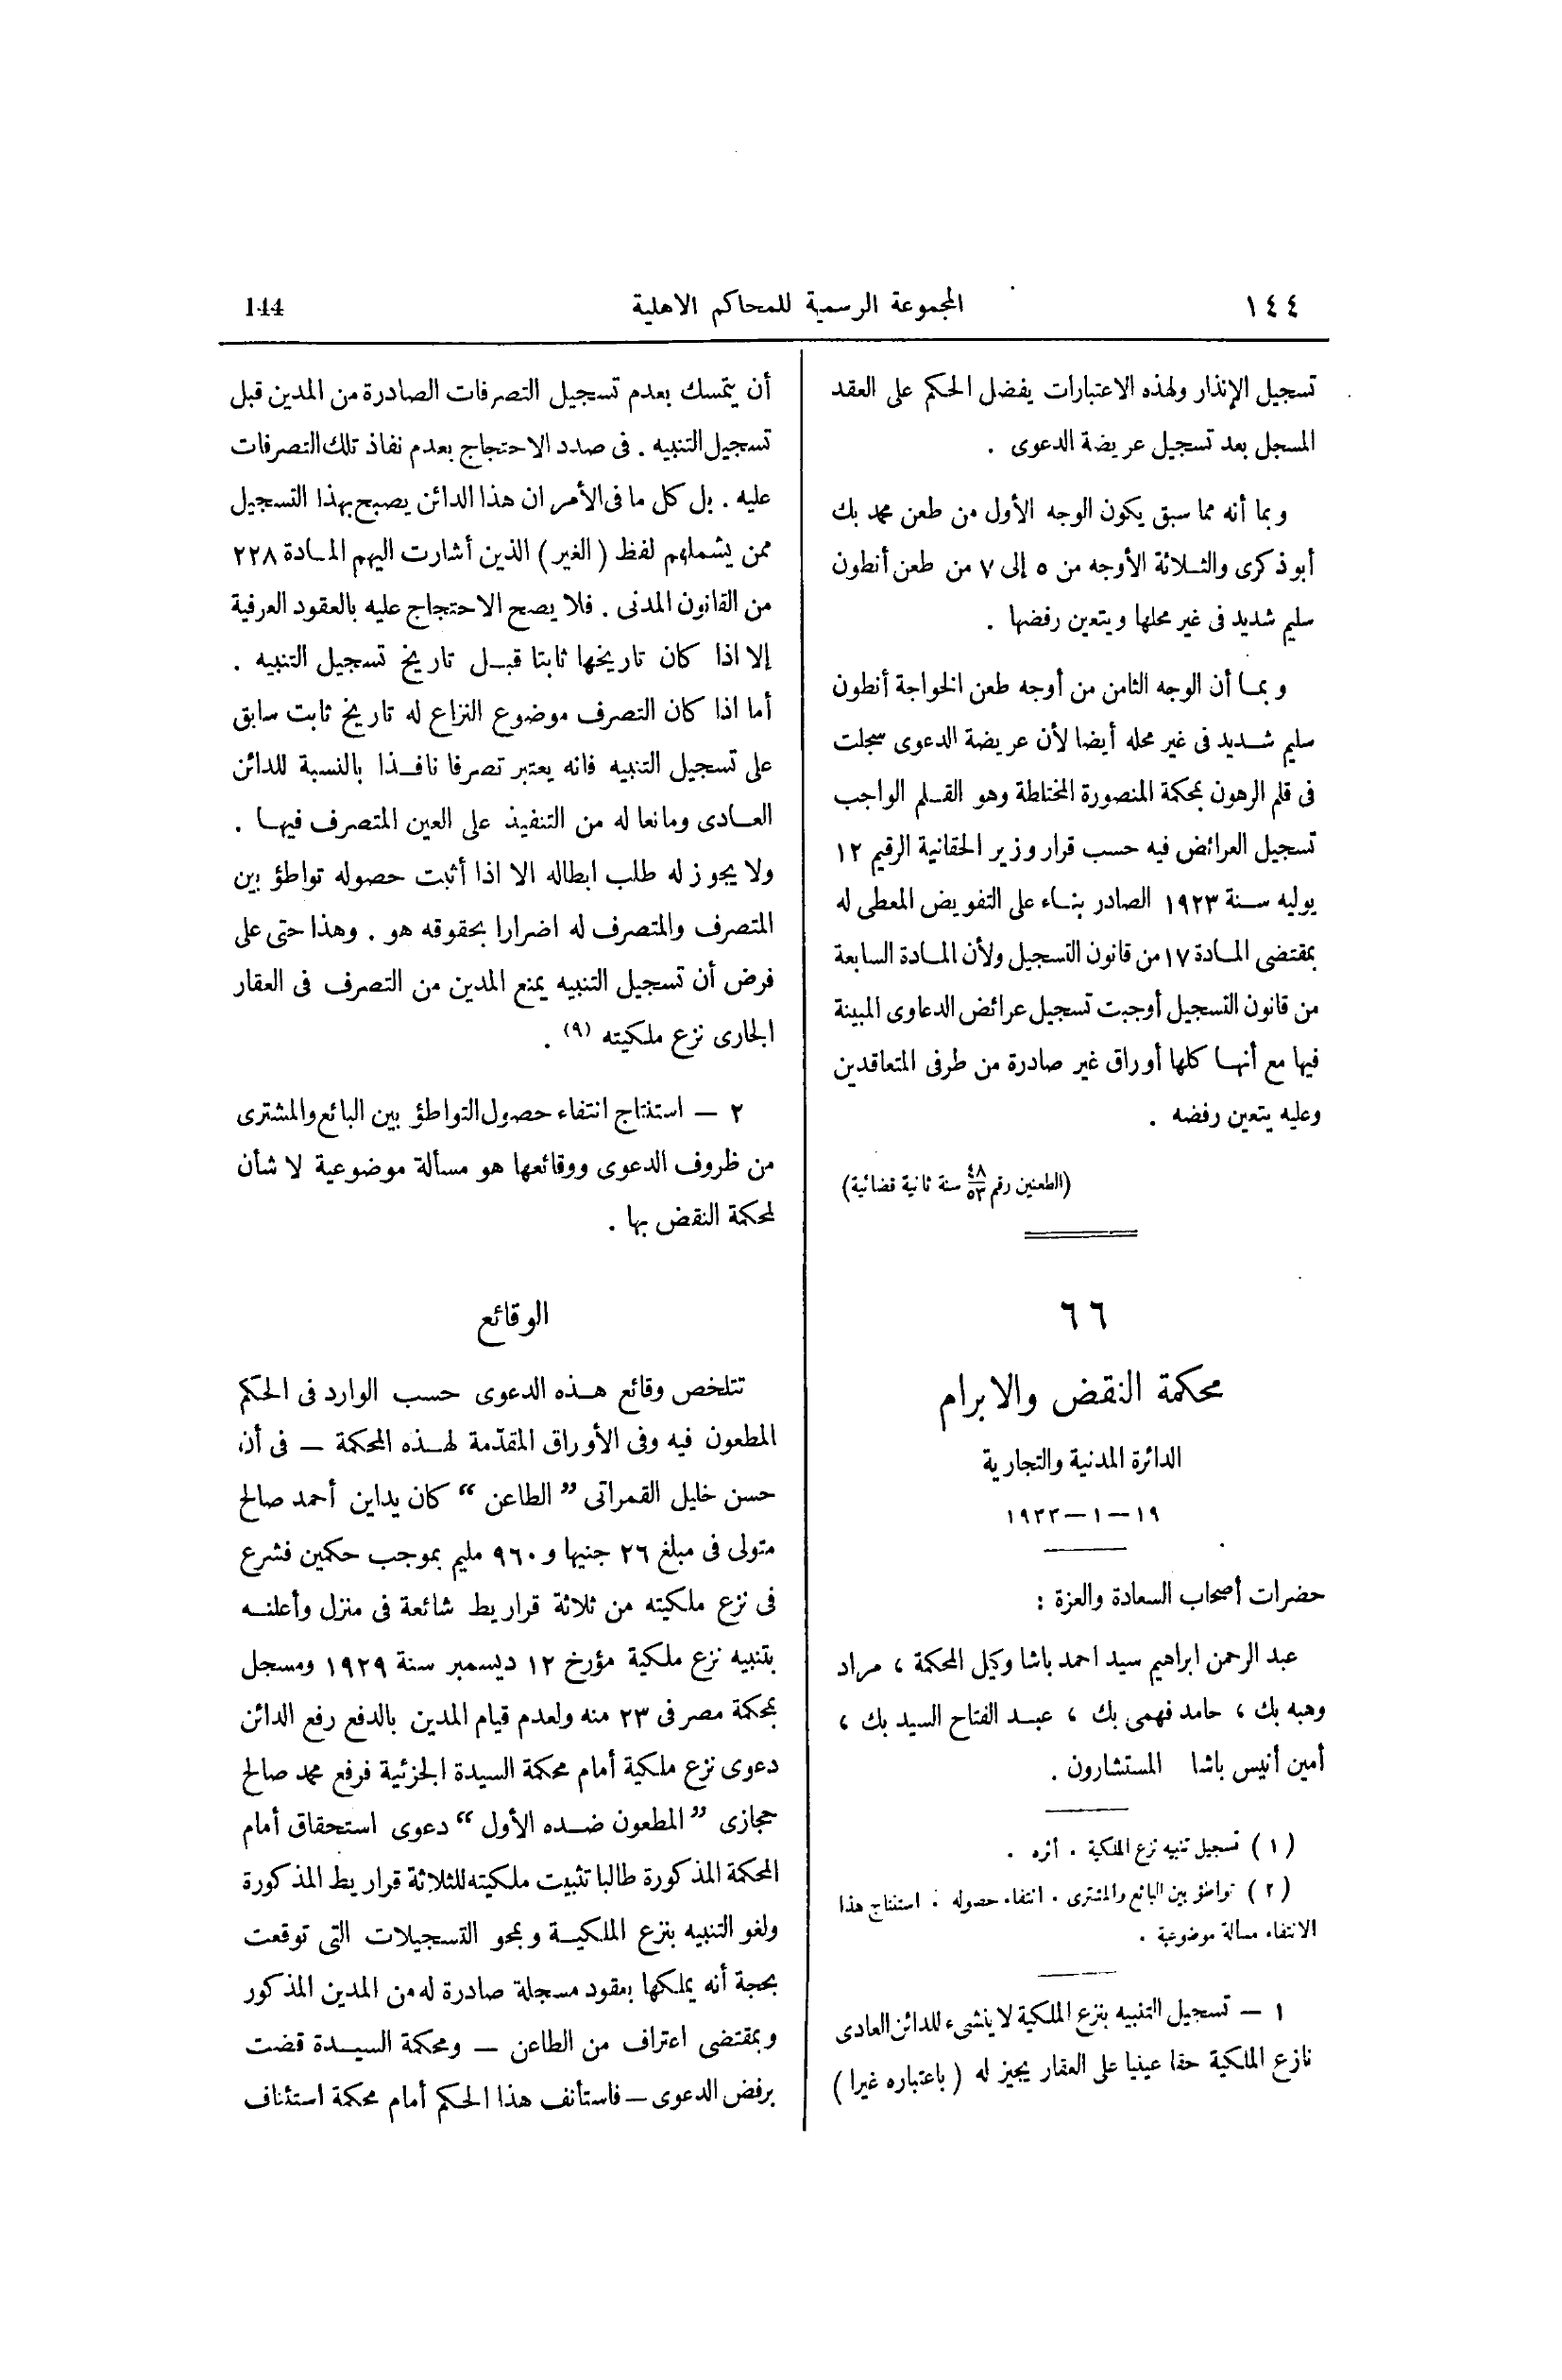 ١٤٤ المجموعة الرسمية للمحاكم الاهلية 144
تسجيل الإنذار ولهذه الاعتبارات يفضل الحكم على العقد
المسجل بعد تسجيل عريضة الدعوى .
وبما أنه مما سبق يكون الوجه الأول من طعن محمد بك
أبو ذكرى والثلاثة الأوجه من ٥ إلى ٧ من طعن أنطون
سليم شديد فى غير محلها ويتعين رفضها .
وبما أن الوجه الثامن من أوجه طعن الخواجة أنطون
سليم شديد فى غير محله أيضا لأن عريضة الدعوى سجلت
فى قلم الرهون بمحكمة المنصورة المختلطة وهو القلم الواجب
تسجيل العرائض فيه حسب قرار وزير الحقانية الرقيم ١٢
يوليه سنة ١٩٢٣ الصادر بناء على التفويض المعطى له
بمقتضى المادة ١٧ من قانون التسجيل ولأن المادة السابعة
من قانون التسجيل أوجبت تسجيل عرائض الدعاوى المبينة
فيها مع أنها كلها أوراق غير صادرة من طرفى المتعاقدين
وعليه يتعين رفضه .
(الطعنين رقم ٤٨/٥٣ سنة ثانية قضائية)
٦٦
محكمة النقض والابرام
الدائرة المدنية والتجارية
١٩ — ١ — ١٩٣٣
حضرات أصحاب السعادة والعزة :
عبد الرحمن ابراهيم سيد احمد باشا وكيل المحكمة ، مراد
وهبه بك ، حامد فهمى بك ، عبد الفتاح السيد بك ،
أمين أنيس باشا المستشارون .
(١) تسجيل تنبيه نزع الملكية . أثره .
(٢) تواطؤ بين البائع والمشترى . انتفاء حصوله . استنتاج هذا
الانتفاء مسألة موضوعية .
١ — تسجيل التنبيه بنزع الملكية لا ينشىء للدائن العادى
نازع الملكية حقا عينيا على العقار يجيز له (باعتباره غيرا)
أن يتمسك بعدم تسجيل التصرفات الصادرة من المدين قبل
تسجيل التنبيه . فى صدد الاحتجاج بعدم نفاذ تلك التصرفات
عليه . بل كل ما فى الأمر ان هذا الدائن يصبح بهذا التسجيل
ممن يشملهم لفظ (الغير) الذين أشارت اليهم المادة ٢٢٨
من القانون المدنى . فلا يصح الاحتجاج عليه بالعقود العرفية
إلا اذا كان تاريخها ثابتا قبل تاريخ تسجيل التنبيه .
أما اذا كان التصرف موضوع النزاع له تاريخ ثابت سابق
على تسجيل التنبيه فانه يعتبر تصرفا نافذا بالنسبة للدائن
العادى ومانعا له من التنفيذ على العين المتصرف فيها .
ولا يجوز له طلب ابطاله الا اذا أثبت حصوله تواطؤ بين
المتصرف والمتصرف له اضرارا بحقوقه هو . وهذا حتى على
فرض أن تسجيل التنبيه يمنع المدين من التصرف فى العقار
الجارى نزع ملكيته (٩) .
٢ — استنتاج انتفاء حصول التواطؤ بين البائع والمشترى
من ظروف الدعوى ووقائعها هو مسألة موضوعية لا شأن
لمحكمة النقض بها .
الوقائع
تتلخص وقائع هذه الدعوى حسب الوارد فى الحكم
المطعون فيه وفى الأوراق المقدّمة لهذه المحكمة — فى أن
حسن خليل القمراتى ” الطاعن “ كان يداين أحمد صالح
متولى فى مبلغ ٢٦ جنيها و ٩٦٠ مليم بموجب حكمين فشرع
فى نزع ملكيته من ثلاثة قراريط شائعة فى منزل وأعلنه
بتنبيه نزع ملكية مؤرخ ١٢ ديسمبر سنة ١٩٢٩ ومسجل
بمحكمة مصر فى ٢٣ منه ولعدم قيام المدين بالدفع رفع الدائن
دعوى نزع ملكية أمام محكمة السيدة الجزئية فرفع محمد صالح
حجازى ” المطعون ضده الأول “ دعوى استحقاق أمام
المحكمة المذكورة طالبا تثبيت ملكيته للثلاثة قراريط المذكورة
ولغو التنبيه بنزع الملكية وبمحو التسجيلات التى توقعت
بحجة أنه يملكها بعقود مسجلة صادرة له من المدين المذكور
وبمقتضى اعتراف من الطاعن — ومحكمة السيدة قضت
برفض الدعوى — فاستأنف هذا الحكم أمام محكمة استئناف